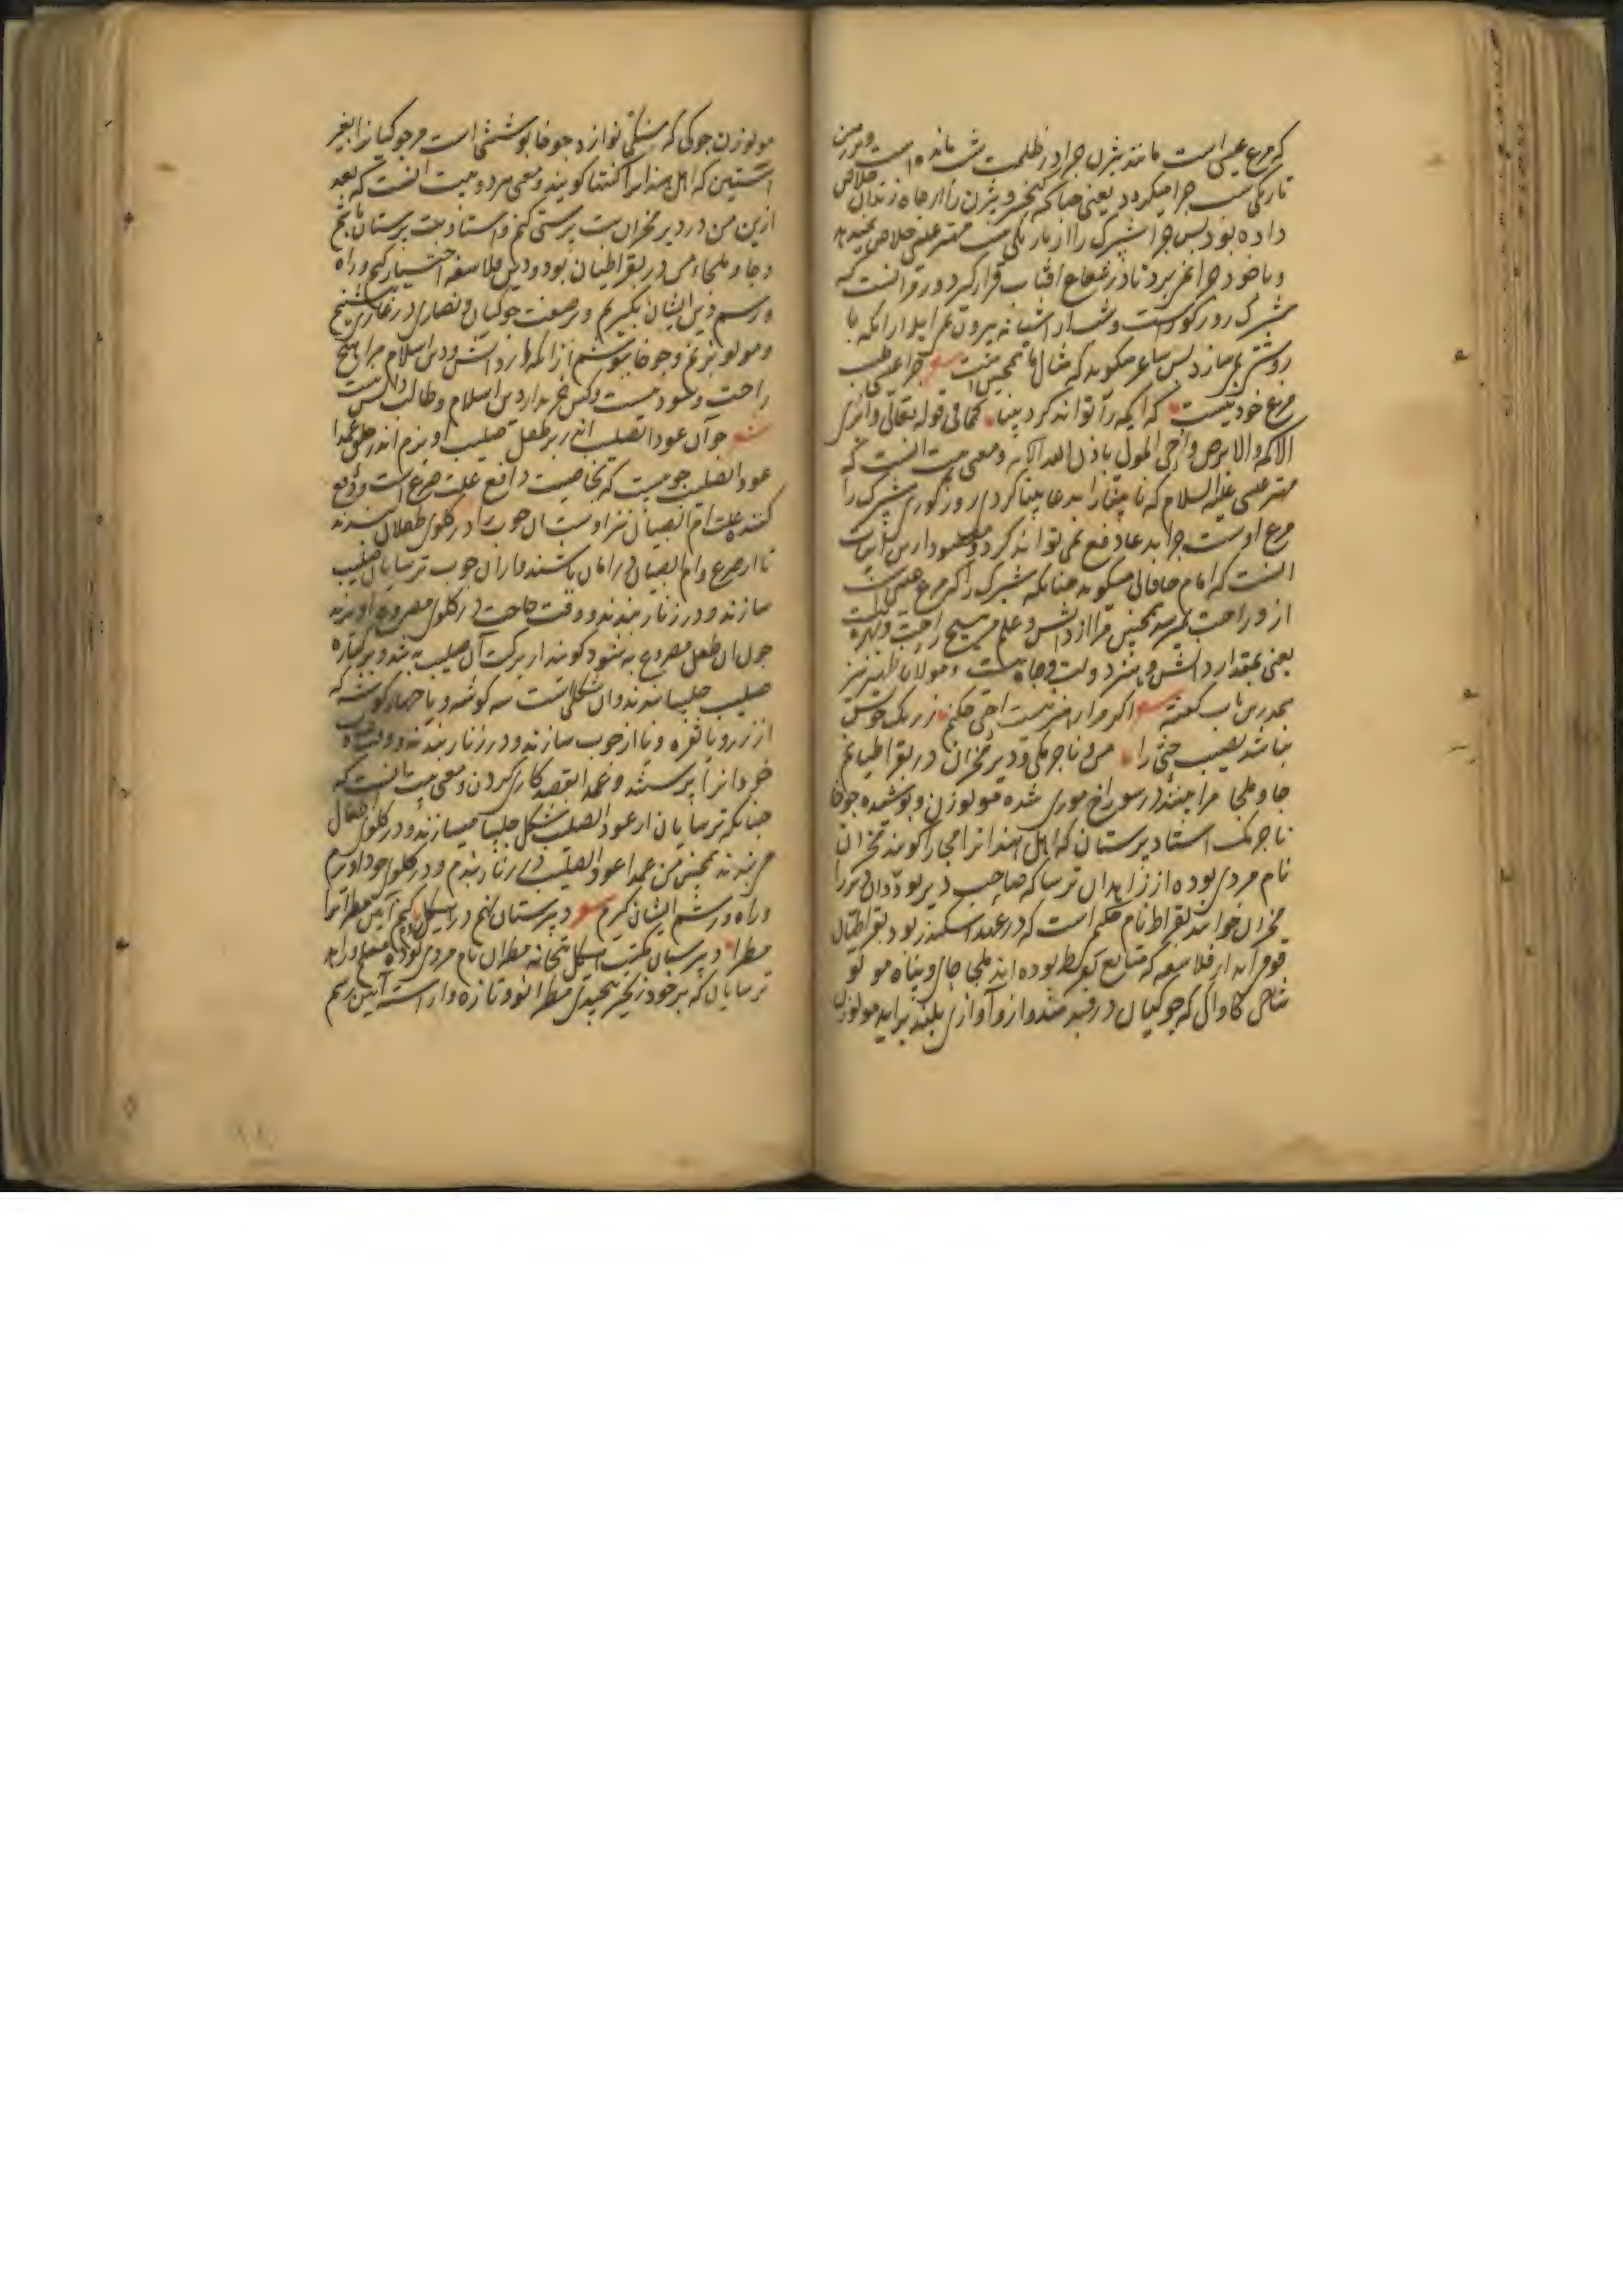 که مرغ عیسی است مانند بیژن چرا در ظلمت شب مانده است و درین
تاریکی شب چرا میگردد یعنی چنانکه کیخسرو بیژن را از چاه زندان خلاص
داده بود پس چرا شپرک را از تاریکی شب مهتر عیسی خلاص نمیدهد
و با خود چرا نمی برد تا در شعاع افتاب قرار گیرد و رمز انست که
شپرک روز کور است و شب از اشیانه بیرون می اید از انکه با
روشنی نمی سازد پس شاعر میگوید که مثال ما همچنین است چرا عیسی طبیب
مرغ خود نیست که اکمه را تواند کرد بینا کما فی قوله تعالی وابری
الاکمه والابرص واحی الموتی باذن الله الایه و معنی بیت انست که
مهتر عیسی علیه السلام که نابینا را بدعا بینا کردی روز کوری شپرک را
مرغ اوست چرا بدعا دفع نمی تواند کرد و مقصود از این ابیات
انست که امام خاقانی میگوید چنانکه شپرک را که مرغ عیسی است
ازو راحت نمیرسد همچنین مرا از دانش و علم من هیچ راحت و بهره نیست
یعنی بمقدار دانش و هنر دولت و جاه نیست و مولانا ظهیر نیز
درین باب گفته شعر اگر مرا ز هنر نیست راحتی چکنم ز رنگ خویش
نباشد نصیب حنی را من و ناجرمکی و دیر مخران در بقراطیانم
جا و ملجا مرا بینند در سوراخ موری شده مولوزن و پوشیده چوخا
ناجرمک استاد پرستان که اهل هند انرا گویند مخران
نام مردی بوده از زاهدان ترسا که صاحب دیر بود و ان دیر را
مخران خوانند بقراط نام حکیم است که در عهد اسکندر بود بقراطیان
قومی اند از فلاسفه که متابع بقراط بوده اند ملجا جای و پناه مولو
شاخ کاواک که جوکیان در دمند و ازو آوازی بلند براید مولوزن
مولوزن جوکی که سنکی نوازد چوخا پوششی است مر جوکیان را بغیر
استین که اهل هند انرا کنتها گویند و معنی هر دو بیت انست که بعد
ازین من در دیر مخران بت پرستی کنم و استاد بت پرستان باشم
و جا و ملجاء من در بقراطیان بود و دین فلاسفه اختیار کنم و راه
و رسم دین ایشان بگیرم و بر صفت جوکیان و نصاری در غاری نشینم
و مولو بزنم و چوخا بپوشم از انکه از دانش و دین اسلام مرا هیچ
راحت و سود نیست و کس خریدار دین اسلام و طالب دانش نیست
شعر چو آن عود الصلیب اندر بر طفل صلیب آویزم اندر حلق عمدا
عود الصلیب چوبیست که بخاصیت دافع علت صرع است و دفع
کننده علت ام الصبیان نیز اوست ان چوب را در گلوی طفلان بندند
تا از صرع و ام الصبیان در امان باشند و از ان چوب ترسایان صلیب
سازند و در زنار بندند و وقت حاجت در گلوی مصروع اویزند
چون ان طفل مصروع به شود گویند از برکت آن صلیب به شد
صلیب چلیپا بندند و ان شکلی است سه گوشه و یا چهار گوشه که
از زر و یا نقره و یا از چوب سازند و در زنار بندند و وقت
خود انرا پرستند و عمدا بقصد کاری کردن و معنی بیت انست که
چنانکه ترسایان از عود الصلیب شکل چلیپا میسازند و در گلوی اطفال
می بندند همچنین من عمدا عود الصلیب در زنار بندم و در گلوی خود اویزم
و راه و رسم ایشان گیرم شعر دبیرستان کنم در هیکل روم کنم آیین مطران را
مطرا دبیرستان مکتب هیکل بتخانه مطران نام مردی بوده معلم و زاهد
ترسایان که بر خود زنجیر پیچیدی مطرا نو و تازه و اراسته آیین رسم